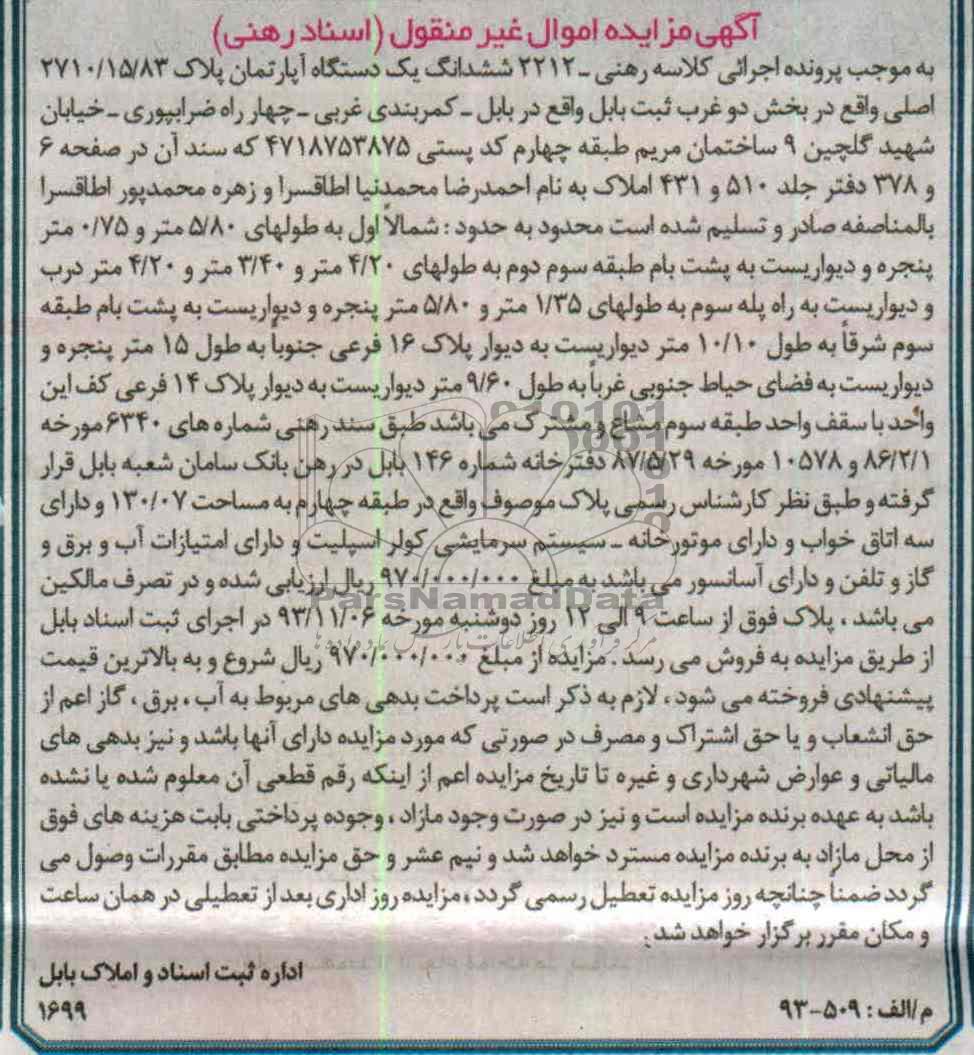 آگهی مزایده اموال غیر منقول (اسناد رهنی)
به موجب پرونده اجرائی کلاسه رهنی ـ ۲۲۱۲ ششدانگ یک دستگاه آپارتمان پلاک ۲۷۱۰/۱۵/۸۳
اصلی واقع در بخش دو غرب ثبت بابل واقع در بابل ـ کمربندی غربی ـ چهار راه ضرابپوری ـ خیابان
شهید گلچین ۹ ساختمان مریم طبقه چهارم کد پستی ۴۷۱۸۷۵۳۸۷۵ که سند آن در صفحه ۶
و ۳۷۸ دفتر جلد ۵۱۰ و ۴۳۱ املاک به نام احمدرضا محمدنیا اطاقسرا و زهره محمدپور اطاقسرا
بالمناصفه صادر و تسلیم شده است محدود به حدود : شمالاً اول به طولهای ۵/۸۰ متر و ۰/۷۵ متر
پنجره و دیواریست به پشت بام طبقه سوم دوم به طولهای ۴/۲۰ متر و ۳/۴۰ متر و ۴/۲۰ متر درب
و دیواریست به راه پله سوم به طولهای ۱/۳۵ متر و ۵/۸۰ متر پنجره و دیواریست به پشت بام طبقه
سوم شرقاً به طول ۱۰/۱۰ متر دیواریست به دیوار پلاک ۱۶ فرعی جنوباً به طول ۱۵ متر پنجره و
دیواریست به فضای حیاط جنوبی غرباً به طول ۹/۶۰ متر دیواریست به دیوار پلاک ۱۴ فرعی کف این
واحد با سقف واحد طبقه سوم مشاع و مشترک می باشد طبق سند رهنی شماره های ۶۳۴۰ مورخه
۸۶/۲/۱ و ۱۰۵۷۸ مورخه ۸۷/۵/۲۹ دفترخانه شماره ۱۴۶ بابل در رهن بانک سامان شعبه بابل قرار
گرفته و طبق نظر کارشناس رسمی پلاک موصوف واقع در طبقه چهارم به مساحت ۱۳۰/۰۷ و دارای
سه اتاق خواب و دارای موتورخانه ـ سیستم سرمایشی کولر اسپلیت و دارای امتیازات آب و برق و
گاز و تلفن و دارای آسانسور می باشد به مبلغ ۹۷۰/۰۰۰/۰۰۰ ریال ارزیابی شده و در تصرف مالکین
ParsNamadData
می باشد ، پلاک فوق از ساعت ۹ الی ۱۲ روز دوشنبه مورخه ۹۳/۱۱/۰۶ در اجرای ثبت اسناد بابل
از طریق مزایده به فروش می رسد . مزایده از مبلغ ۹۷۰/۰۰۰/۰۰۰ ریال شروع و به بالاترین قیمت
پیشنهادی فروخته می شود ، لازم به ذکر است پرداخت بدهی های مربوط به آب ، برق ، گاز اعم از
حق انشعاب و یا حق اشتراک و مصرف در صورتی که مورد مزایده دارای آنها باشد و نیز بدهی های
مالیاتی و عوارض شهرداری و غیره تا تاریخ مزایده اعم از اینکه رقم قطعی آن معلوم شده یا نشده
باشد به عهده برنده مزایده است و نیز در صورت وجود مازاد ، وجوده پرداختی بابت هزینه های فوق
از محل مازاد به برنده مزایده مسترد خواهد شد و نیم عشر و حق مزایده مطابق مقررات وصول می
گردد ضمناً چنانچه روز مزایده تعطیل رسمی گردد ، مزایده روز اداری بعد از تعطیلی در همان ساعت
و مکان مقرر برگزار خواهد شد .
اداره ثبت اسناد و املاک بابل
م/الف : ۵۰۹-۹۳
۱۶۹۹